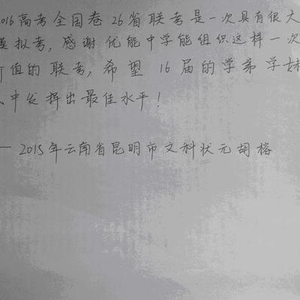 016高考全国卷26省联考是一次具有很大
模拟考,感谢优能中学能组织这样一次
价值的联考,希望16届的学弟学妹
中发挥出最佳水平!
—2015年云南省昆明市文科状元胡榕